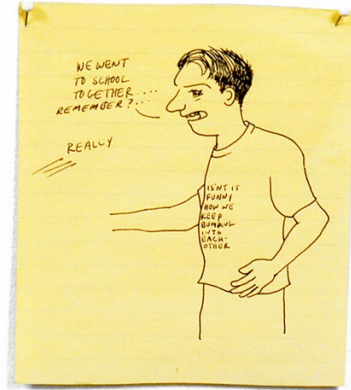 WE WENT
TO SCHOOL
TOGETHER....
REMEMBER?...
REALLY
ISN'T IT
FUNNY
HOW WE
KEEP
BUMPING
INTO
EACH-
OTHER